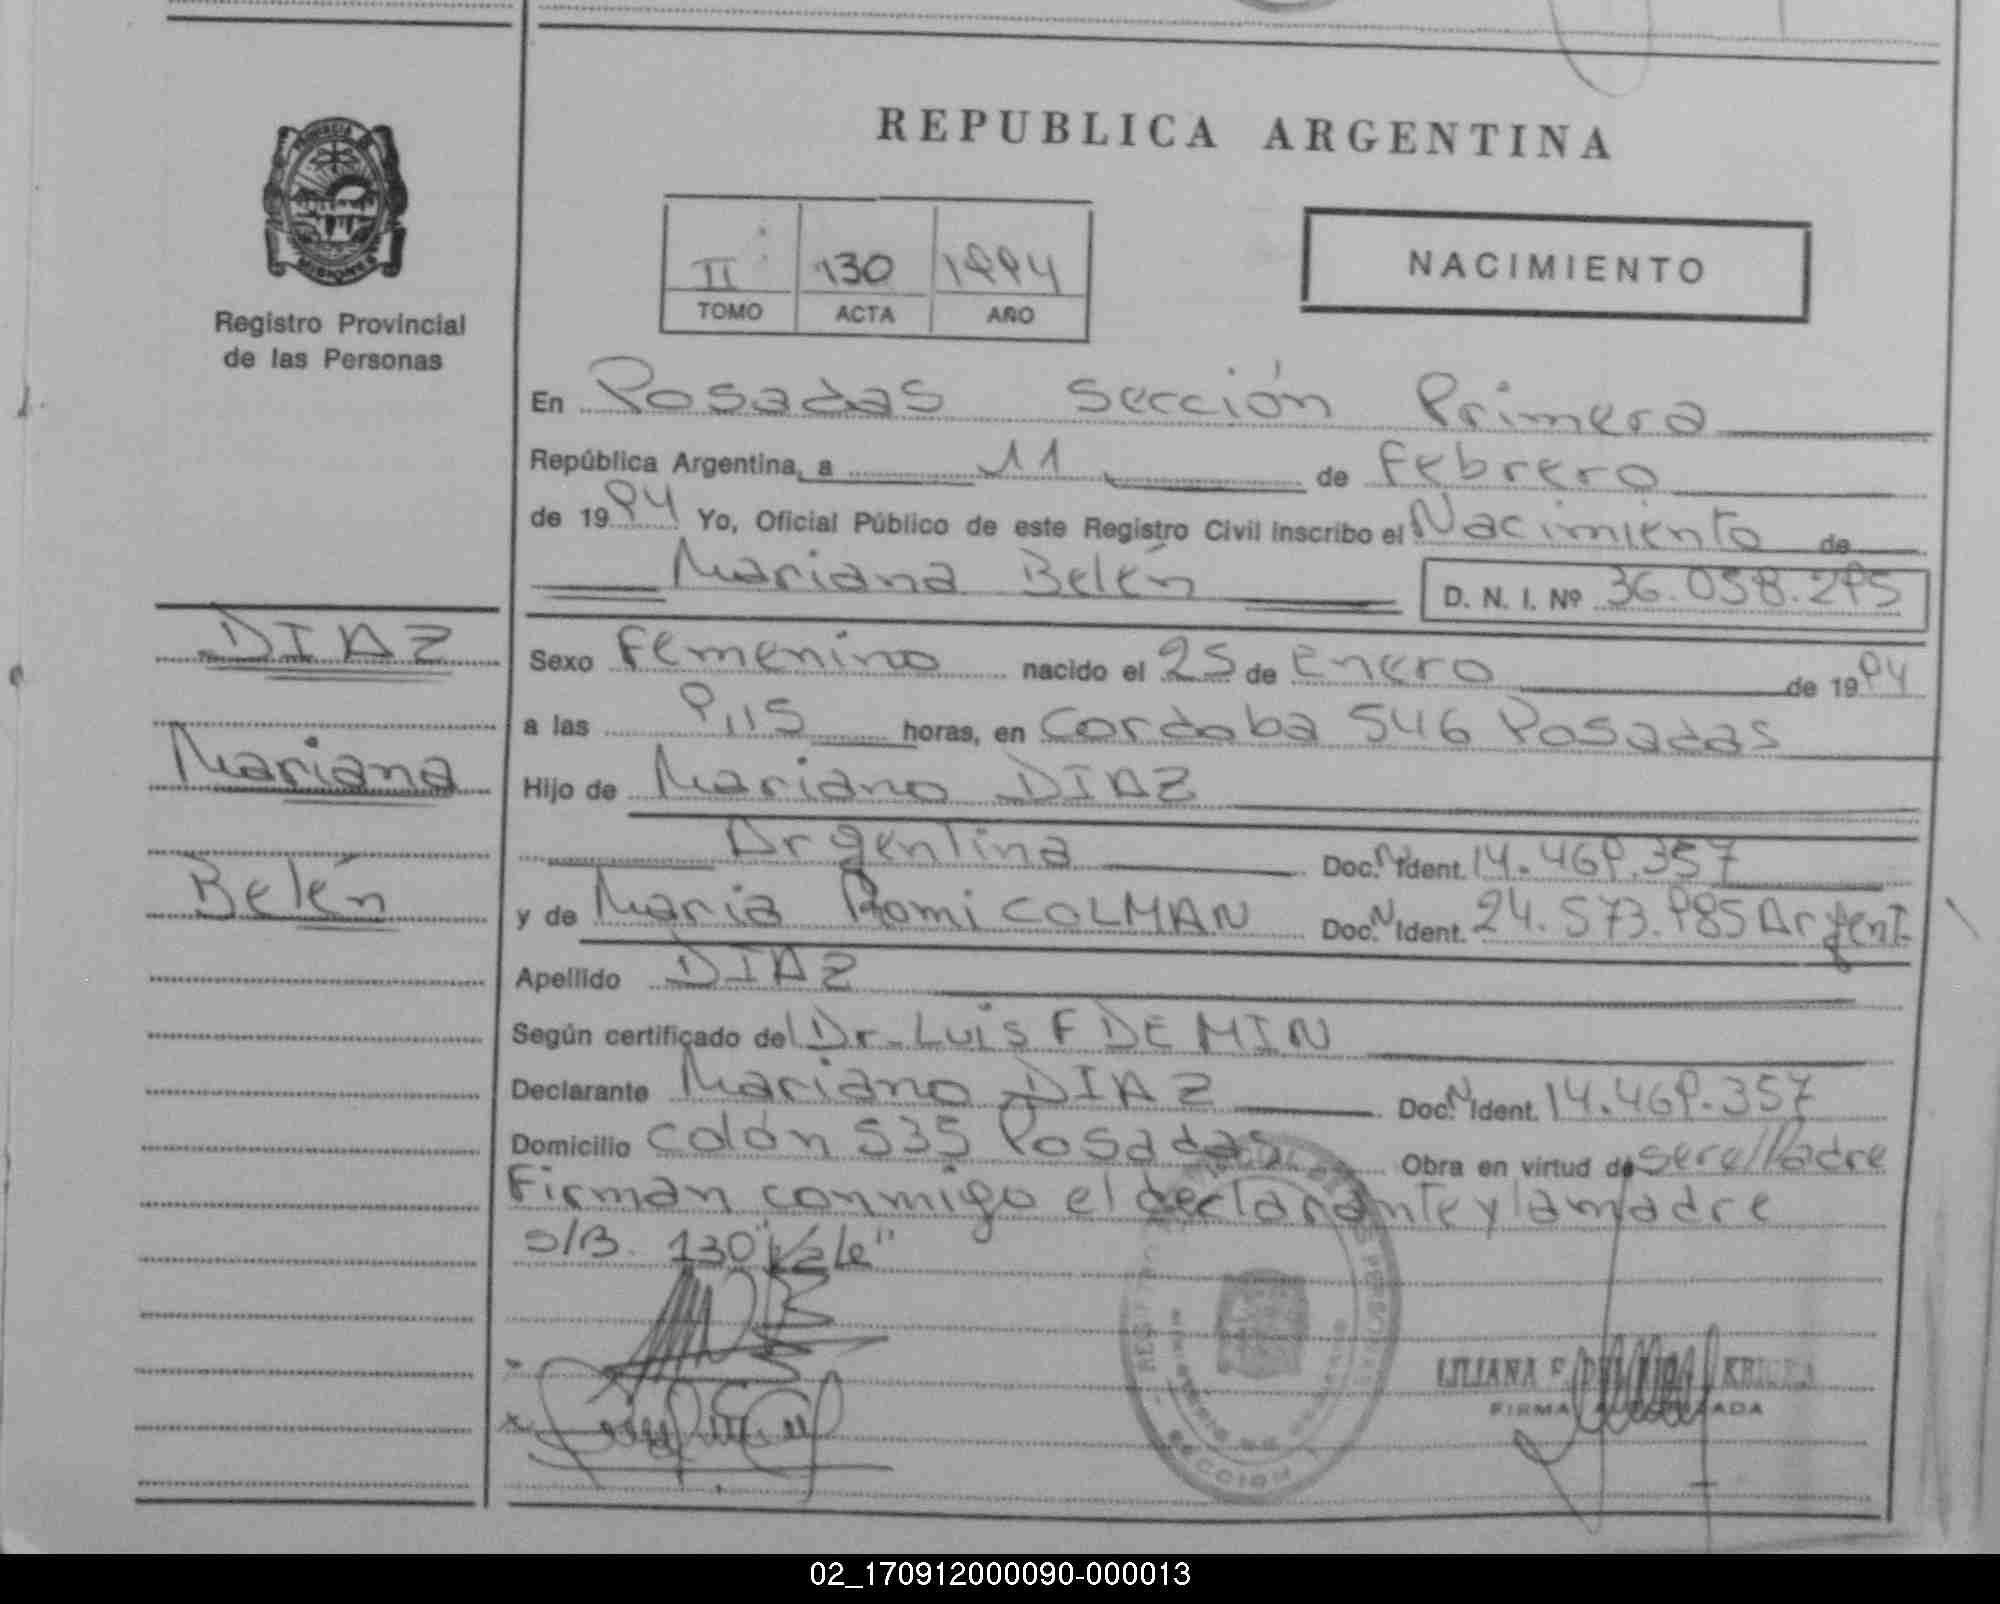 REPUBLICA ARGENTINA
PROVINCIA DE
MISIONES
Registro Provincial
de las Personas
II 130 1994
TOMO ACTA AÑO
NACIMIENTO
En Posadas Sección Primera
República Argentina, a 11 de Febrero
de 1994 Yo, Oficial Público de este Registro Civil inscribo el Nacimiento de
Mariana Belén D. N. I. Nº 36.058.295
DIAZ
Mariana
Belén
Sexo Femenino nacido el 25 de Enero de 1994
a las 9,15 horas, en Cordoba 546 Posadas
Hijo de Mariano DIAZ
Argentina Doc. N Ident. 14.469.357
y de Maria Romi COLMAN Doc. N Ident. 24.573.985 Argent.
Apellido DIAZ
Según certificado del Dr. Luis F DEMIN
Declarante Mariano DIAZ Doc. N Ident. 14.469.357
Domicilio Colón 535 Posadas Obra en virtud de ser el Padre
Firman conmigo el declarante y la madre
S/B. 130 "vale"
LILIANA
FIRMA AUTORIZADA
SECCION 1
02_170912000090-000013